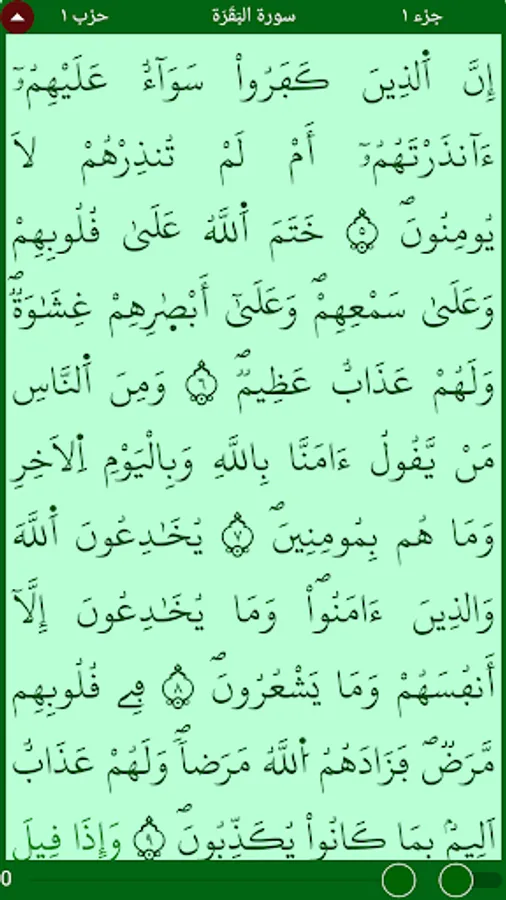 جزء ١ سورة البَقَرَة حزب ١
إِنَّ اَ۬لذِينَ كَفَرُواْ سَوَآءٌ عَلَيْهِمُۥٓ
ءَآنذَرْتَهُمُۥٓ أَمْ لَمْ تُنذِرْهُمْ لَا
يُومِنُونَۖ ٥ خَتَمَ اَ۬للَّهُ عَلَىٰ قُلُوبِهِمْ
وَعَلَىٰ سَمْعِهِمْۖ وَعَلَىٰٓ أَبْصٰ۪رِهِمْ غِشَٰوَةٞۖ
وَلَهُمْ عَذَابٌ عَظِيمٞۖ ٦ وَمِنَ اَ۬لنَّاسِ
مَنْ يَّقُولُ ءَامَنَّا بِاللَّهِ وَبِالْيَوْمِ اِ۬لَاخِرِ
وَمَا هُم بِمُومِنِينَۖ ٧ يُخَٰدِعُونَ اَ۬للَّهَ
وَالذِينَ ءَامَنُواْۖ وَمَا يُخَٰدِعُونَ إِلَّآ
أَنفُسَهُمْ وَمَا يَشْعُرُونَۖ ٨ فِے قُلُوبِهِم
مَّرَضٞۖ فَزَادَهُمُ اُ۬للَّهُ مَرَضاٗۖ وَلَهُمْ عَذَابٌ
اَلِيمُۢ بِمَا كَانُواْ يُكَذِّبُونَۖ ٩ وَإِذَا قِيلَ
0